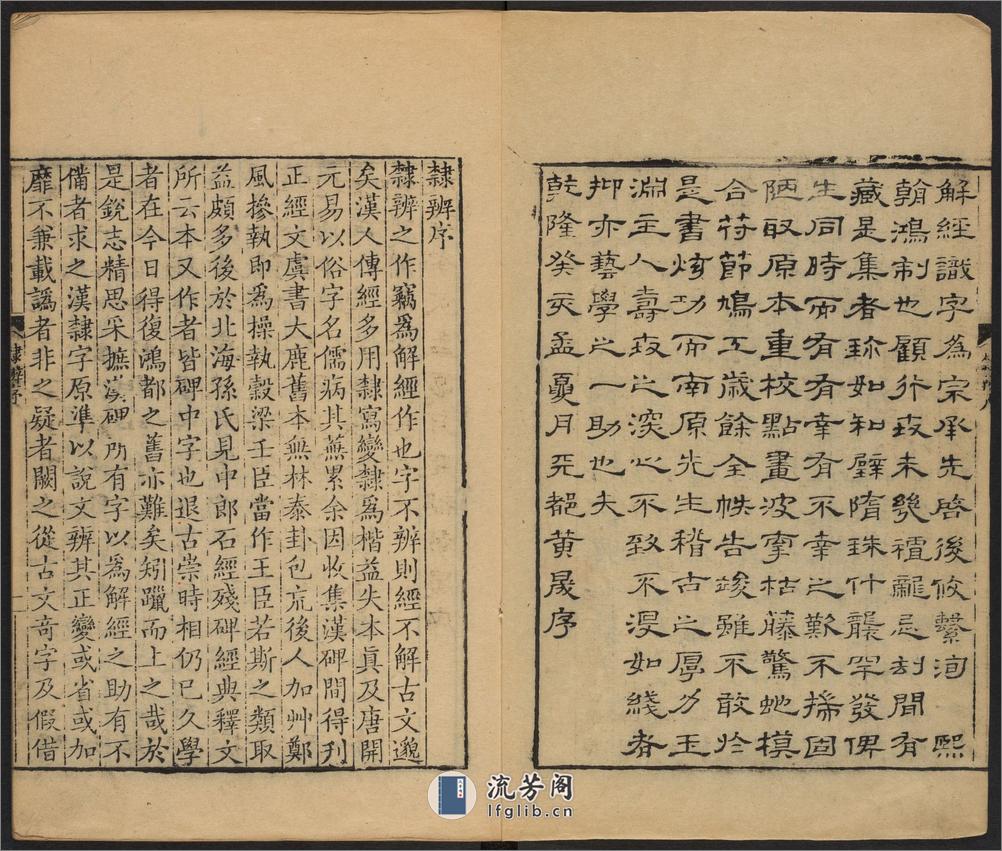 解經識字為宗承先啓後攸繫洵熙
朝鴻制也顧行世未幾龍忌刻聞有
藏是集者珍如和璧隋珠什襲罕發俾
生同時而有有幸有不幸之歎不揣固
陋取原本重校點畫波拏枯藤驚虵模
合符節鳩工歲餘全帙告竣雖不敢於
是書炫功而南原先生稽古之厚力玉
淵主人壽世之深心不致不湮如綫者
抑亦藝學之一助也夫
乾隆癸亥孟夏月天都黃晟序
隸辨序
隸辨之作竊爲解經作也字不辨則經不解古文邈
矣漢人傳經多用隸寫變隸爲楷益失本眞及唐開
元易以俗字名儒病其蕪累余因收集漢碑間得刊
正經文虞書大鹿舊本無林泰卦包㐬後人加艸鄭
風摻執即爲操執穀梁壬臣當作王臣若斯之類取
益頗多後於北海孫氏見中郎石經殘碑經典釋文
所云本又作者皆碑中字也退古崇時相仍已久學
者在今日得復鴻都之舊亦難矣矧躐而上之哉於
是銳志精思采摭漢碑所有字以爲解經之助有不
備者求之漢隸字原準以說文辨其正變或省或加
靡不兼載譌者非之疑者闕之從古文奇字及假借
隸辨序
一
流芳阁
lfglib.cn